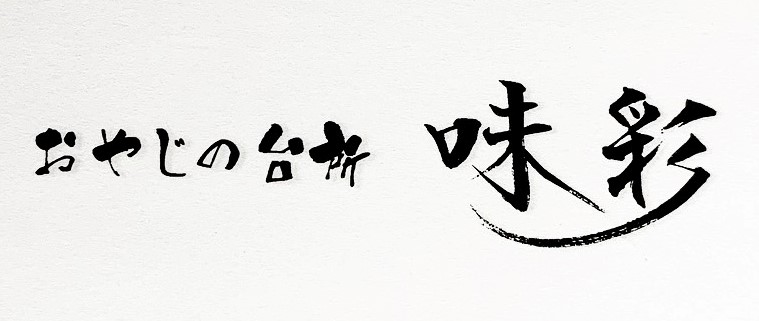 おやじの台所 味彩